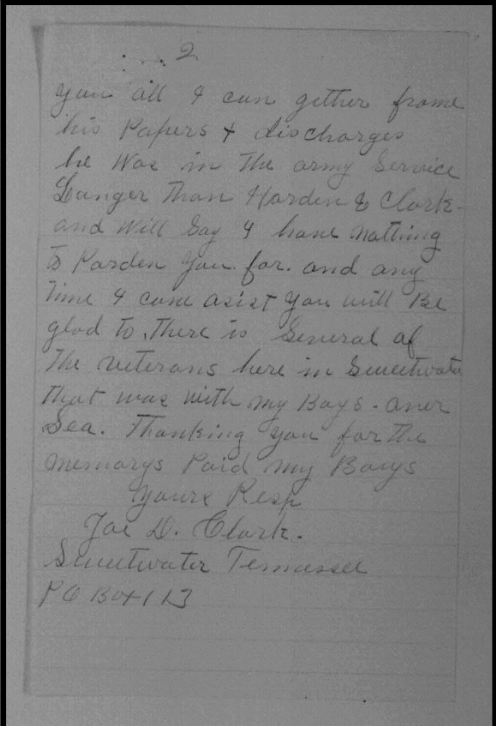 2
you all I can gether frome
his Papers & discharges
he Was in The army Service
Langer Than Harden E Clark.
and Will Say I have nathing
to Parden you for. and any
Time I can asist you will Be
glad to. There is Several of
The veterans here in Sweetwater
That was with my Boys. aver
Sea. Thanking you for the
memorys Paid my Boys
Yours Resp
Joe D. Clark.
Sweetwater Tennessee
P O Box 113